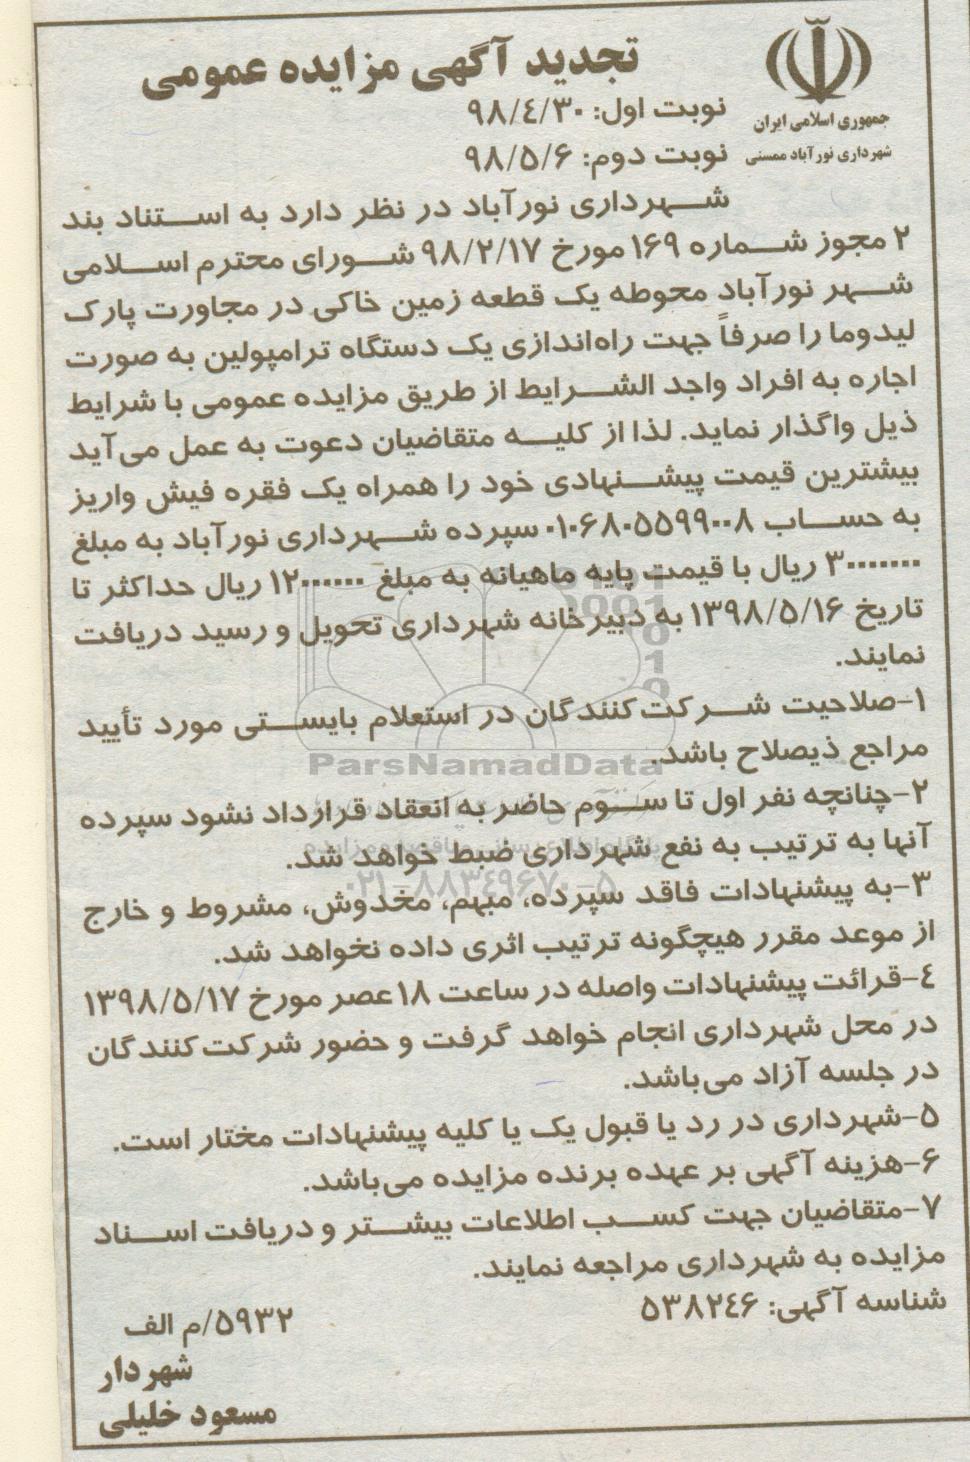 جمهوری اسلامی ایران
شهرداری نورآباد ممسنی
تجدید آگهی مزایده عمومی
نوبت اول: ۹۸/۴/۳۰
نوبت دوم: ۹۸/۵/۶
شهرداری نورآباد در نظر دارد به استناد بند
۲ مجوز شماره ۱۶۹ مورخ ۹۸/۲/۱۷ شورای محترم اسلامی
شهر نورآباد محوطه یک قطعه زمین خاکی در مجاورت پارک
لیدوما را صرفاً جهت راه‌اندازی یک دستگاه ترامپولین به صورت
اجاره به افراد واجد الشرایط از طریق مزایده عمومی با شرایط
ذیل واگذار نماید. لذا از کلیه متقاضیان دعوت به عمل می‌آید
بیشترین قیمت پیشنهادی خود را همراه یک فقره فیش واریز
به حساب ۰۱۰۶۸۰۵۵۹۹۰۰۸ سپرده شهرداری نورآباد به مبلغ
۳۰۰۰۰۰۰۰ ریال با قیمت پایه ماهیانه به مبلغ ۱۲۰۰۰۰۰۰ ریال حداکثر تا
تاریخ ۱۳۹۸/۵/۱۶ به دبیرخانه شهرداری تحویل و رسید دریافت
نمایند.
۱-صلاحیت شرکت‌کنندگان در استعلام بایستی مورد تأیید
مراجع ذیصلاح باشد.
ParsNamadData
۲-چنانچه نفر اول تا سوم حاضر به انعقاد قرارداد نشود سپرده
آنها به ترتیب به نفع شهرداری ضبط خواهد شد.
۰۲۱-۸۸۳۴۹۶۷۰-۵
۳-به پیشنهادات فاقد سپرده، مبهم، مخدوش، مشروط و خارج
از موعد مقرر هیچگونه ترتیب اثری داده نخواهد شد.
۴-قرائت پیشنهادات واصله در ساعت ۱۸ عصر مورخ ۱۳۹۸/۵/۱۷
در محل شهرداری انجام خواهد گرفت و حضور شرکت‌کنندگان
در جلسه آزاد می‌باشد.
۵-شهرداری در رد یا قبول یک یا کلیه پیشنهادات مختار است.
۶-هزینه آگهی بر عهده برنده مزایده می‌باشد.
۷-متقاضیان جهت کسب اطلاعات بیشتر و دریافت اسناد
مزایده به شهرداری مراجعه نمایند.
شناسه آگهی: ۵۳۸۲۴۶
۵۹۳۲/م الف
شهردار
مسعود خلیلی